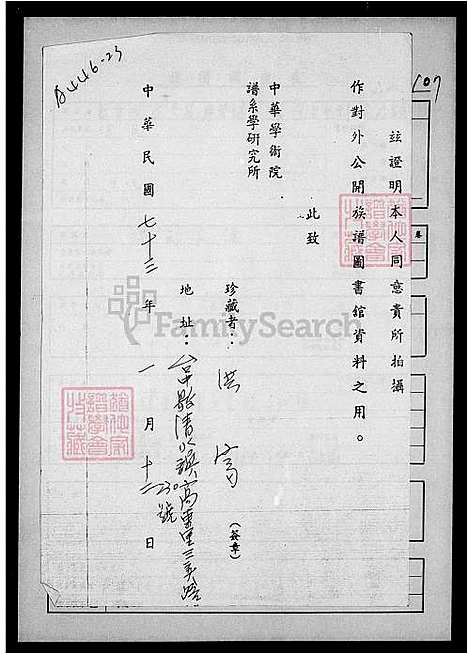 A446-23
107
茲證明本人同意貴所拍攝
作對外公開族譜圖書館資料之用。
此致
中華學術院
譜系學研究所
珍藏者：洪 富 (簽章)
地址：台中縣清水鎮高重里三美路
230號
中華民國七十三年一月十二日
FamilySearch